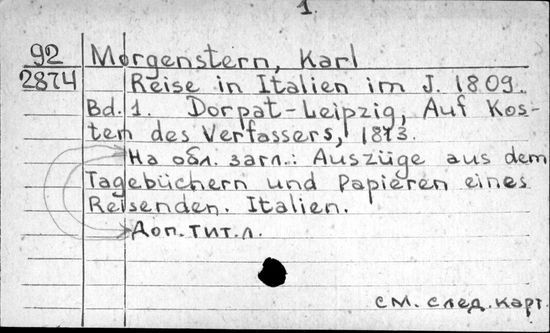 1.
92 Morgenstern, Karl
2874 Reise in Italien im J. 1809.
Bd. 1. Dorpat-Leipzig, Auf Kos-
ten des Verfassers, 1813.
На обл. загл.: Auszüge aus dem
Tagebüchern und Papieren eines
Reisenden. Italien.
Доп. тит. л.
см. след. карт.